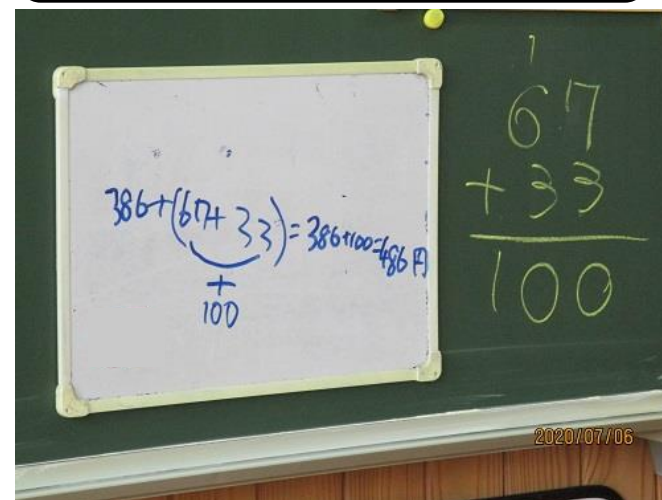 386+(67+33)=386+100=486円
+
100
1
67
+33
100
2020/07/06